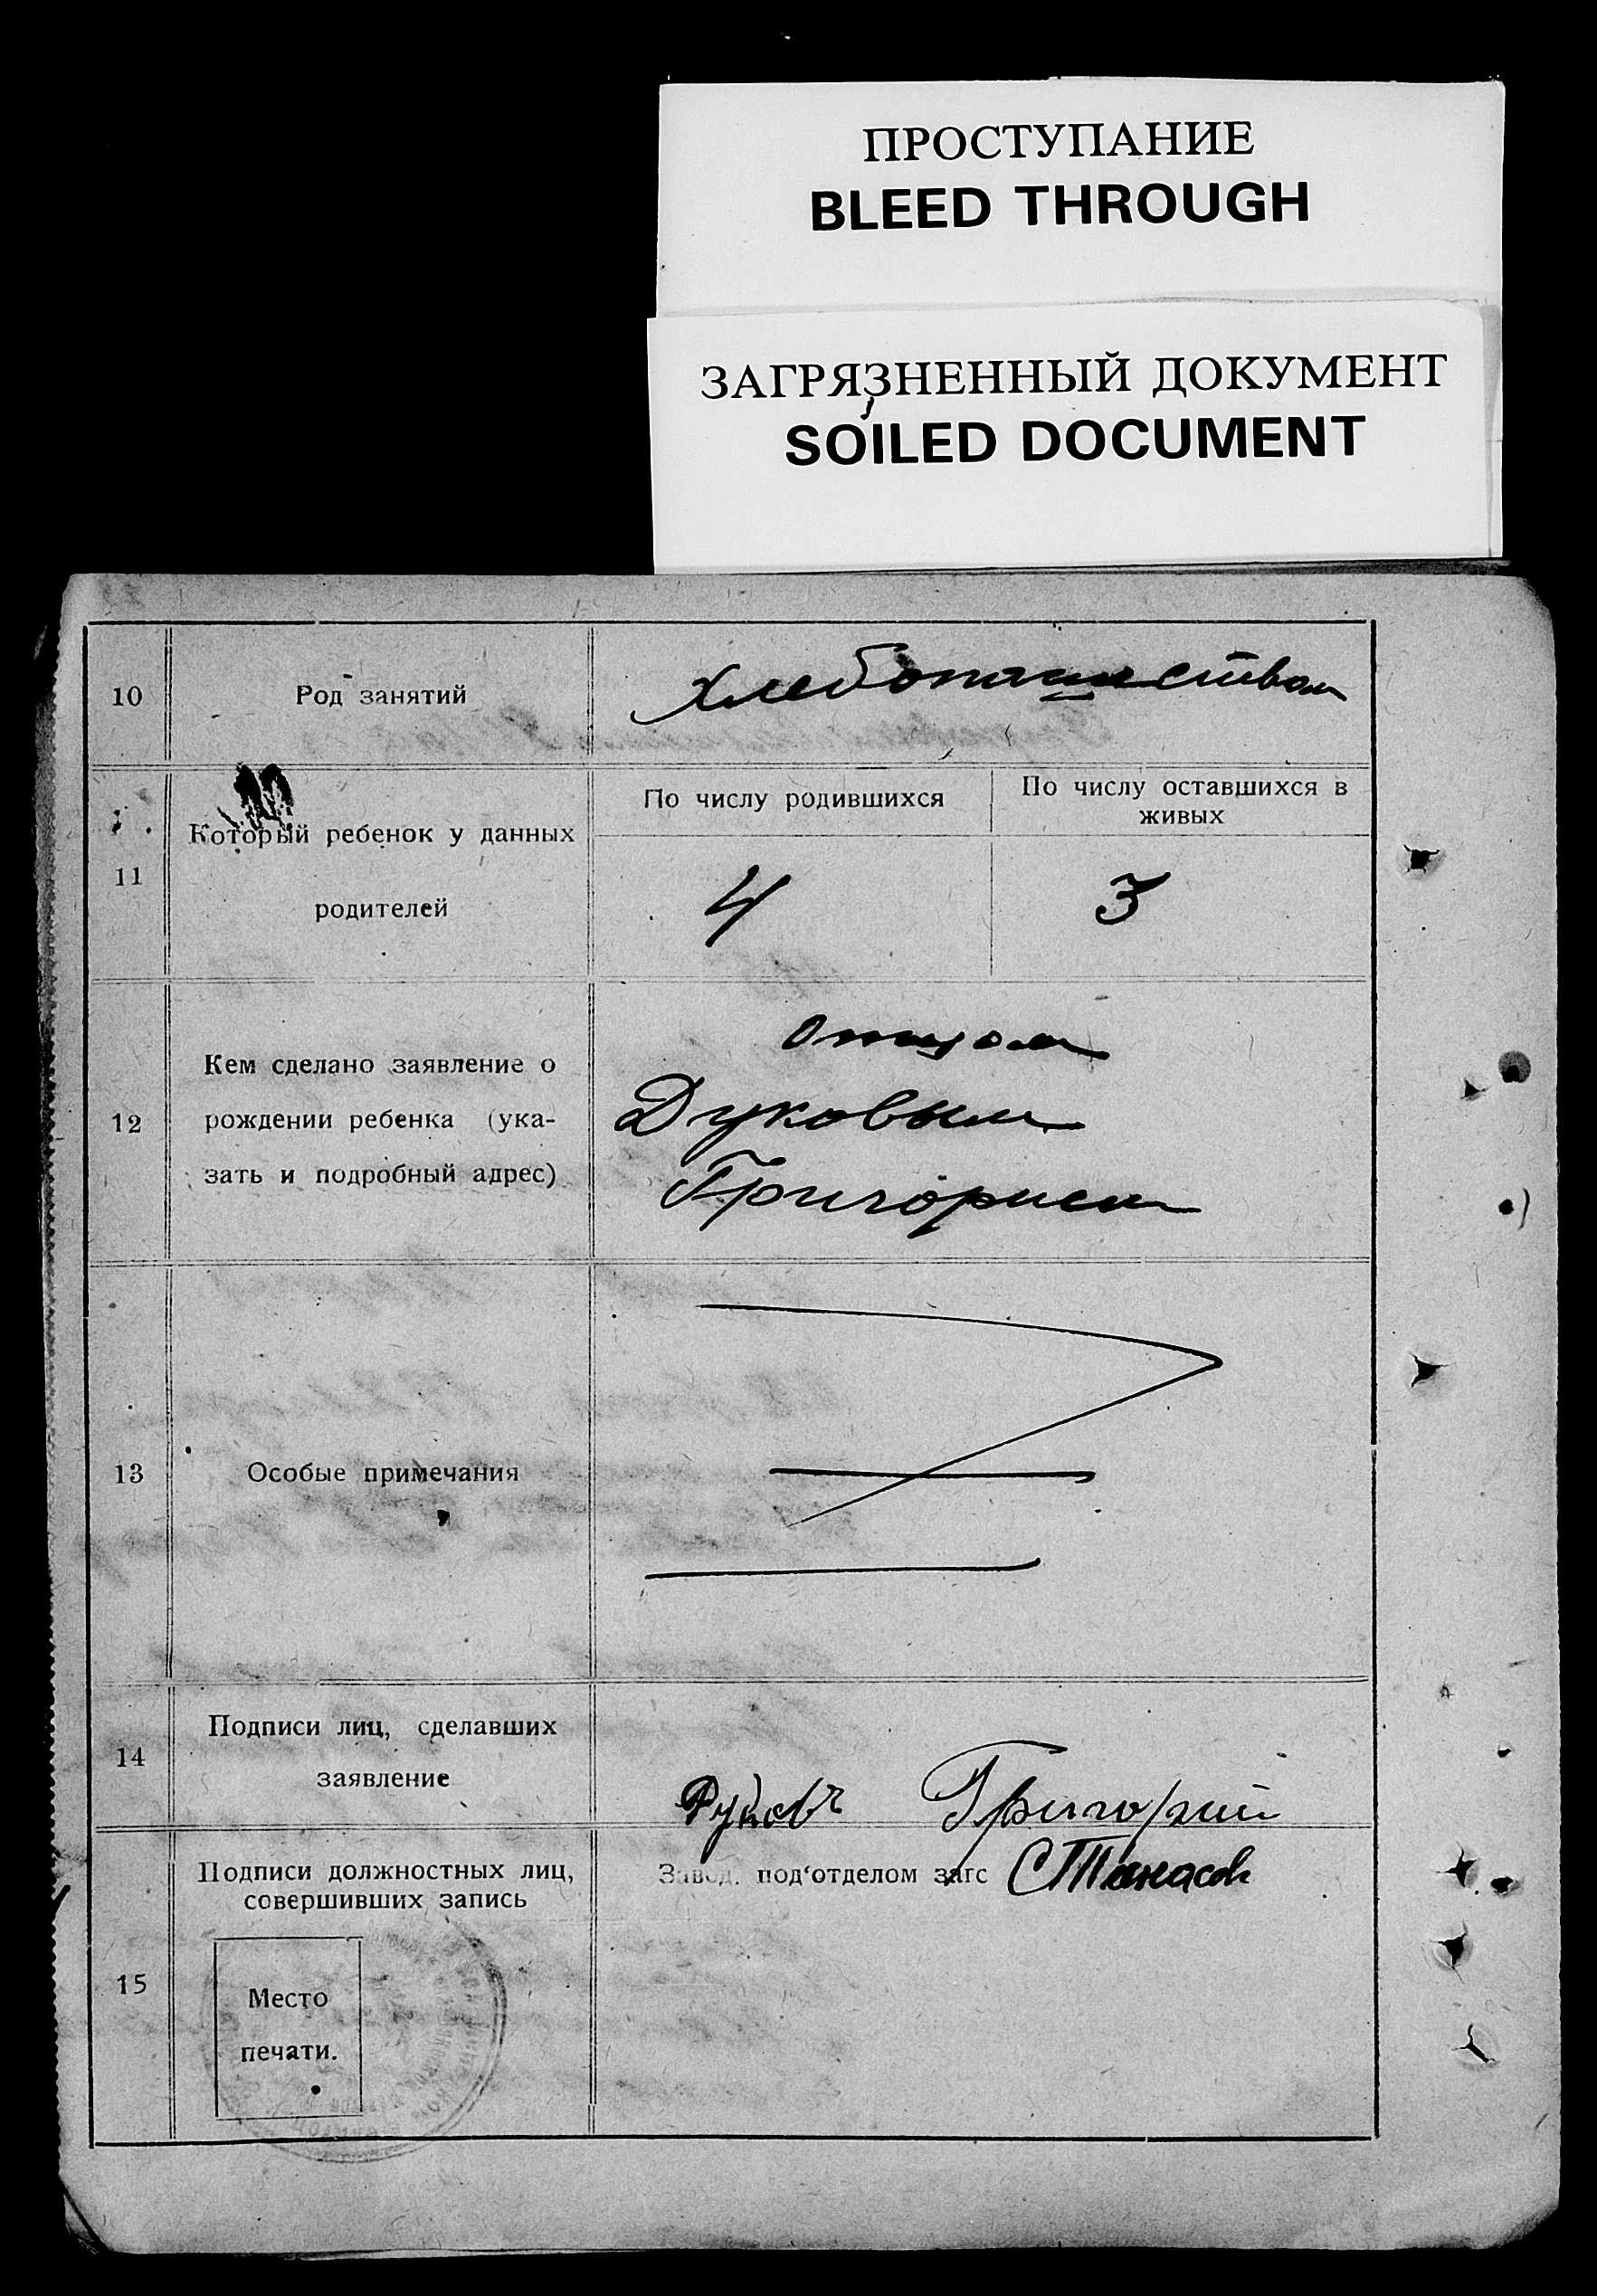 ПРОСТУПАНИЕ
BLEED THROUGH
ЗАГРЯЗНЕННЫЙ ДОКУМЕНТ
SOILED DOCUMENT
10
Род занятий
Хлебопашеством
11
Который ребенок у данных
родителей
По числу родившихся
По числу оставшихся в
живых
4
3
12
Кем сделано заявление о
рождении ребенка (ука-
зать и подробный адрес)
отцом
Дуковым
Григорием
13
Особые примечания
14
Подписи лиц, сделавших
заявление
Григорий
15
Подписи должностных лиц,
совершивших запись
Завод. под'отделом загс
Место
печати.